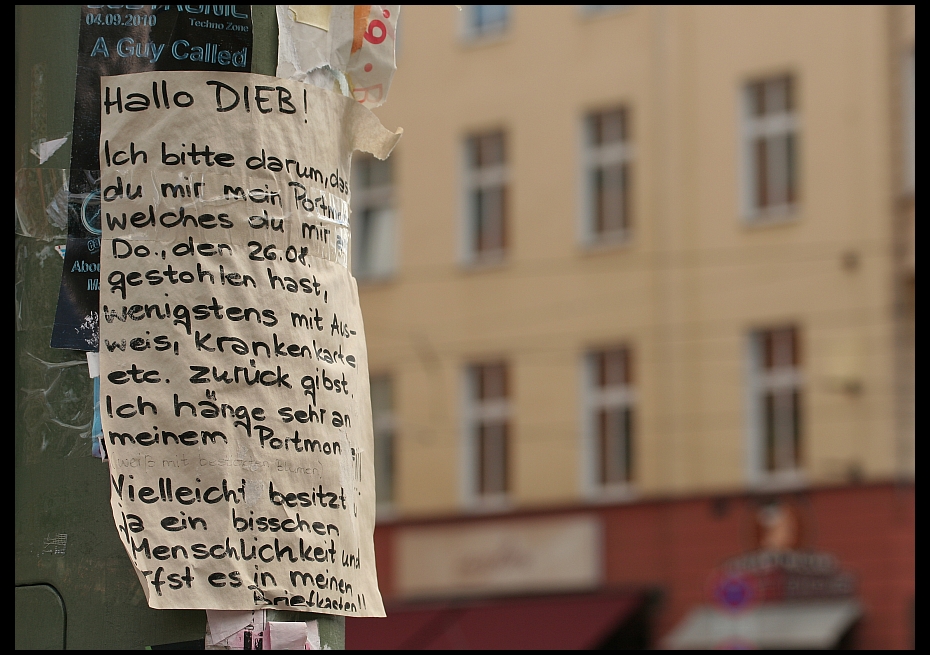 04.09.2010 Techno Zone
A Guy Called
Hallo DIEB!
Ich bitte darum, das
du mir mein
welches du mir
Do., den 26.08.
gestohlen hast,
wenigstens mit Aus-
weis, Krankenkarte
etc. zurück gibst.
Ich hänge sehr an
meinem Portmon
(weiß mit bestickten Blumen)
Vielleicht besitzt
ja ein bisschen
Menschlichkeit und
es in meinen
Briefkasten!!